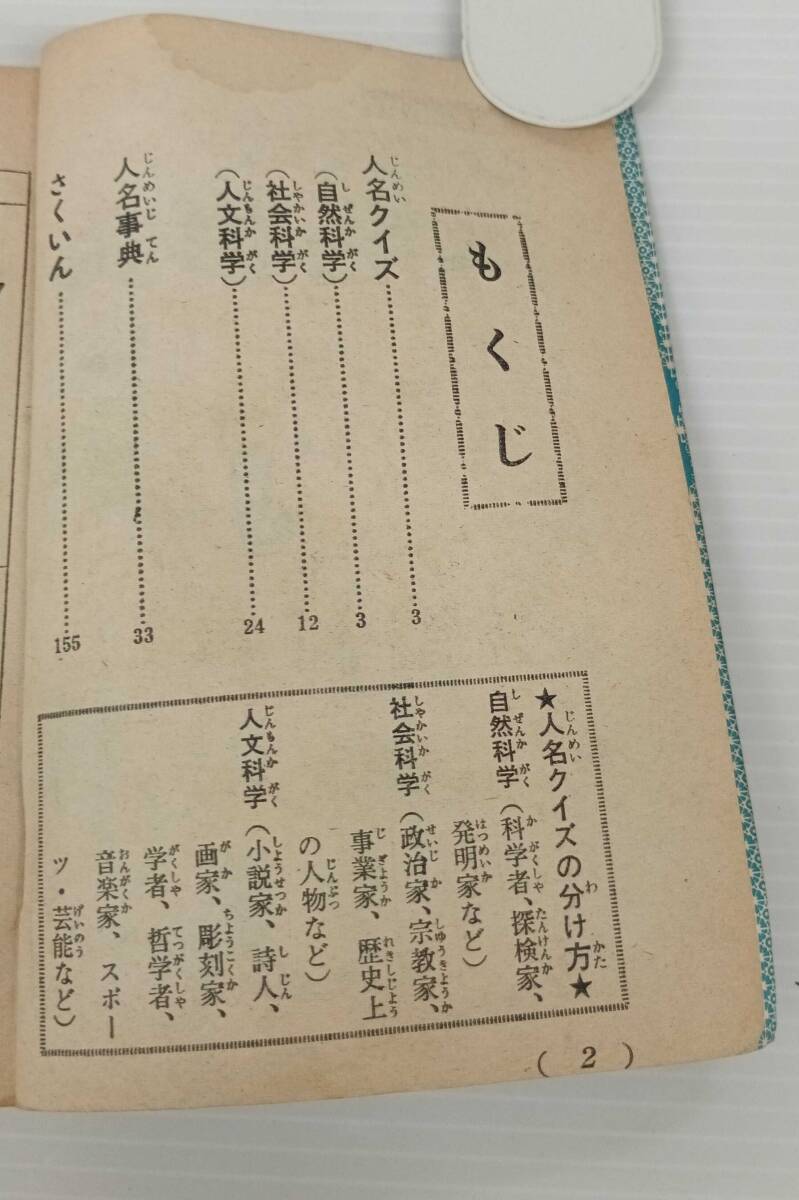 もくじ
人名クイズ……3
(自然科学)……3
(社会科学)……12
(人文科学)……24
人名事典……33
さくいん……155
★人名クイズの分け方★
自然科学(科学者、探検家、
発明家など)
社会科学(政治家、宗教家、
事業家、歴史上
の人物など)
人文科学(小説家、詩人、
画家、彫刻家、
学者、哲学者、
音楽家、スポー
ツ・芸能など)
(2)